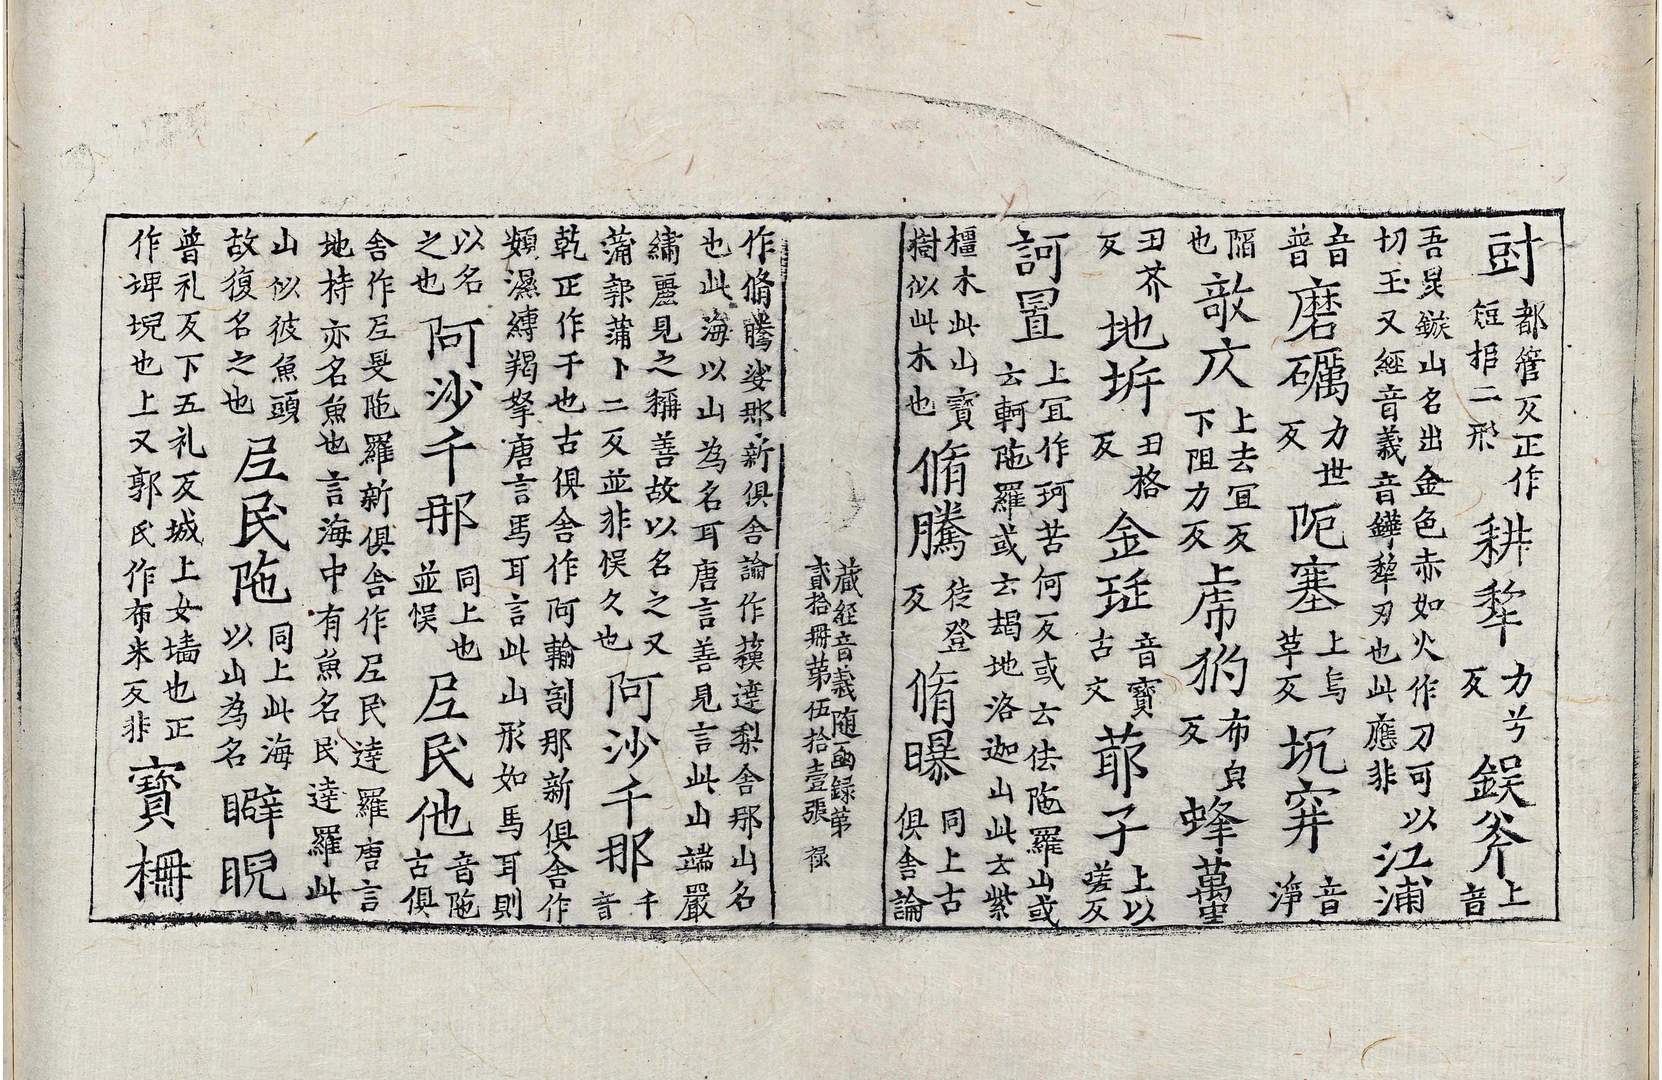 𧯠都管反正作短拒二形耕犂力兮反錕斧上音
吾吳鏃山名出金色赤如火作刀可以切玉又經音義音鏵犂刃也此應非江浦
音普磨礪力世反阨塞上烏草反坑穽音淨
陷也敲仄上去宜反下阻力反虎犳布皃反蜂蠆
丑芥反地坼丑格反金珽音寶古文䓉子上以嗟反
訶置上宜作珂苦何反或云佉陁羅山或云軻陁羅或云朅地洛迦山此云紫
橿木此山寶樹似此木也脩騰徒登反脩曝同上古俱舍論
藏經音義随函録第貳拾冊第伍拾壹張 禄
作脩騰娑那新俱舍論作蘇達梨舍那山名也此海以山為名耳唐言善見言此山端嚴
繡麗見之稱善故以名之又蒲報蒲卜二反並非悮久也阿沙千那千音
乾正作于也古俱舍作阿輸割那新俱舍作頞濕縛羯拏唐言馬耳言此山形如馬耳則
以名之也阿沙千那同上也並悮𡰱民他音陁古俱
舍作𡰱旻陁羅新俱舍作𡰱民逹羅唐言地持亦名魚也言海中有魚名民逹羅此
山似彼魚頭故復名之也𡰱民陁同上此海以山為名睥睨
普礼反下五礼反城上女墻也正作埤堄也上又郭氏作布米反非寳栅